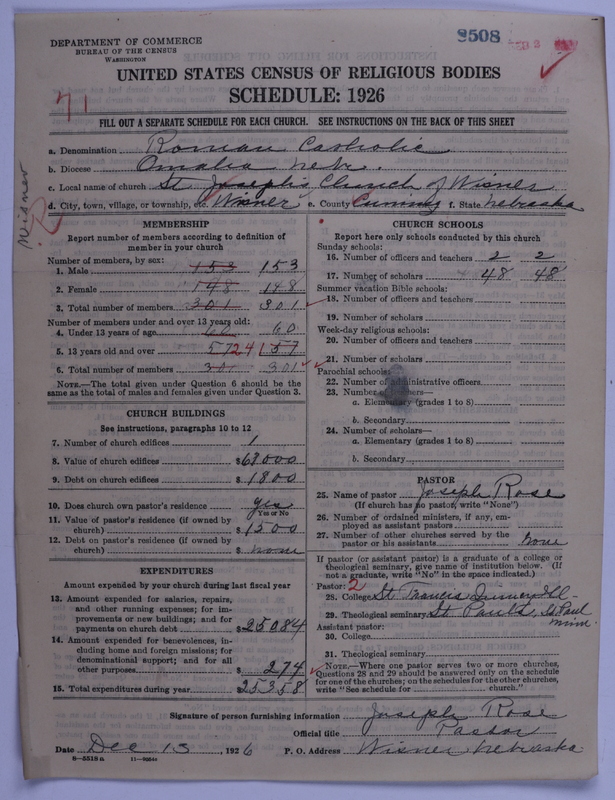 DEPARTMENT OF COMMERCE
BUREAU OF THE CENSUS
WASHINGTON
9508
UNITED STATES CENSUS OF RELIGIOUS BODIES
SCHEDULE: 1926
71
FILL OUT A SEPARATE SCHEDULE FOR EACH CHURCH. SEE INSTRUCTIONS ON THE BACK OF THIS SHEET
a. Denomination Roman Catholic
b. Diocese Omaha Nebr.
c. Local name of church St Joseph's Church of Wisner
d. City, town, village, or township, etc. Wisner e. County Cuming f. State Nebraska
Wisner
MEMBERSHIP
Report number of members according to definition of
member in your church
Number of members, by sex:
1. Male 153 153
2. Female 148 148
3. Total number of members 301 301
Number of members under and over 13 years old:
4. Under 13 years of age 60 60
5. 13 years old and over 57 241 57
6. Total number of members 301 301
NOTE.—The total given under Question 6 should be the
same as the total of males and females given under Question 3.
CHURCH BUILDINGS
See instructions, paragraphs 10 to 12
7. Number of church edifices 1
8. Value of church edifices $68000
9. Debt on church edifices $1800
10. Does church own pastor's residence yes
Yes or No
11. Value of pastor's residence (if owned by
church) $1500
12. Debt on pastor's residence (if owned by
church) $ none
EXPENDITURES
Amount expended by your church during last fiscal year
13. Amount expended for salaries, repairs,
and other running expenses; for im-
provements or new buildings; and for
payments on church debt $25084
14. Amount expended for benevolences, in-
cluding home and foreign missions; for
denominational support; and for all
other purposes $274
15. Total expenditures during year $25358
CHURCH SCHOOLS
Report here only schools conducted by this church
Sunday schools:
16. Number of officers and teachers 2 2
17. Number of scholars 48 48
Summer vacation Bible schools:
18. Number of officers and teachers
19. Number of scholars
Week-day religious schools:
20. Number of officers and teachers
21. Number of scholars
Parochial schools:
22. Number of administrative officers
23. Number of teachers—
a. Elementary (grades 1 to 8)
b. Secondary
24. Number of scholars—
a. Elementary (grades 1 to 8)
b. Secondary
PASTOR
25. Name of pastor Joseph Rose
(If church has no pastor, write "None")
26. Number of ordained ministers, if any, em-
ployed as assistant pastors
27. Number of other churches served by the
pastor or his assistants None
If pastor (or assistant pastor) is a graduate of a college or
theological seminary, give name of institution below. (If
not a graduate, write "No" in the space indicated.)
Pastor: 2
28. College St. Francis Quincy Ill-
29. Theological seminary St Paul's, St Paul
Minn.
Assistant pastor:
30. College
31. Theological seminary
NOTE.—Where one pastor serves two or more churches,
Questions 28 and 29 should be answered only on the schedule
for one of the churches; on the schedules for the other churches,
write "See schedule for church."
Signature of person furnishing information Joseph Rose
Official title Pastor
Date Dec 15 1926 P. O. Address Wisner Nebraska
8—5518a